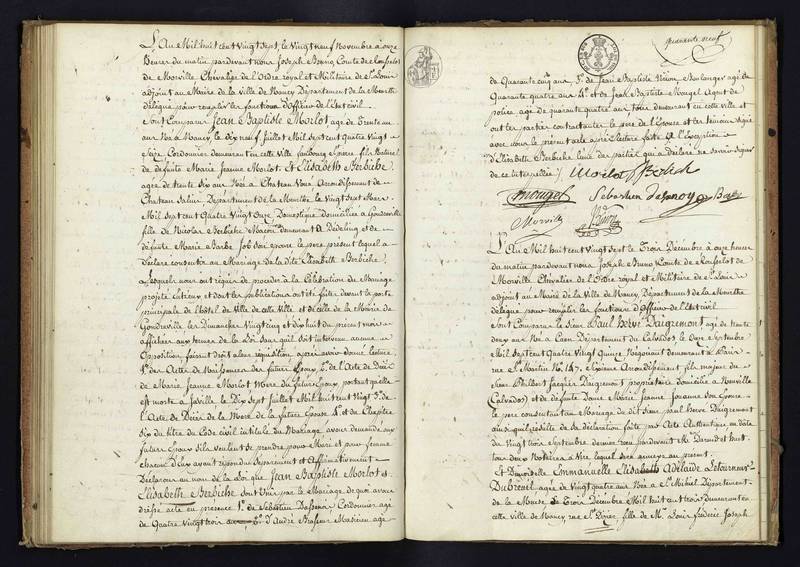 L'An Mil huit cent Vingt Sept, le Vingt neuf Novembre à onze
heures du matin pardevant nous Joseph Bruno, Comte de
de Morville, Chevalier de l'Ordre royal et Militaire de St Louis
adjoint au Maire de la Ville de Nancy Département de la Meurthe
délégué pour remplir les fonctions d'Officier de l'Etat civil.
Sont Comparus Jean Baptiste Morlot agé de Trente
ans Né à Nancy, le dix neuf Juillet Mil Sept cent Quatre Vingt
Seize Cordonnier demeurant en cette Ville faubourg St pierre fils Naturel
de défunte Marie Jeanne Morlot. Et Elisabeth Berbiche
agée de trente Six ans Née à Chateau Voué Arrondissement de
Chateau Salins Département de la Meurthe le Vingt Sept Mars
Mil Sept cent Quatre Vingt Onze Domestique domiciliée à Gondreville
fille de Nicolas Berbiche Maçon demeurant à Dédeling et de
défunte Marie Barbe Job Son épouse le père présent lequel a
Déclaré consentir au Mariage de la dite Elisabeth Berbiche.
Lesquels nous ont requis de procéder à la Célébration du Mariage
projeté entre eux et dont les publications ont été faites devant la porte
principale de l'hôtel de Ville de cette Ville et de celle de la Mairie de
Gondreville les Dimanches Vingt cinq et dix huit du présent mois
affichées aux termes de la Loi Sans qu'il Soit intervenu aucune
Opposition faisant droit à leur réquisition après avoir donné lecture
1° des Actes de Naissances des futurs Epoux, 2° de l'Acte de Décès
de Marie Jeanne Morlot Mère du futur Epoux, portant qu'elle
est morte à Laville le Dix Sept Juillet Mil huit cent Vingt 3° de
l'Acte de Décès de la Mère de la future Epouse 4° et du Chapitre
Six du titre du Code civil intitulé du Mariage avons demandé aux
futurs Epoux S'ils veulent Se prendre pour Mari et pour femme
chacun d'eux ayant répondu Séparément et Affirmativement
Déclarons au nom de la Loi que Jean Baptiste Morlot et
Elisabeth Berbiche Sont Unis par le Mariage de quoi avons
dressé acte en présence 1° de Sébastien Cordonnier agé
de Quatre Vingt trois 2° d'André Musicien agé
quarante neuf
de Quarante cinq ans 3° de Jean Baptiste Boulanger agé de
Quarante quatre ans 4° et de Jean Baptiste Mougel Agent de
police agé de quarante quatre ans tous demeurant en cette ville et
ont les parties contractantes le père de l'épouse et les témoins Signé
avec nous le présent acte après Lecture faite à l'exception
d'Elisabeth Berbiche l'une des parties qui a déclaré ne Savoir Signer
de ce interpellée
Morlot J Berbich
Mougel Sebastien
Morville
L'An Mil huit cent Vingt Sept le Trois Décembre à onze heures
du matin pardevant nous Joseph Bruno Comte de
Morville Chevalier de l'Ordre royal et Militaire de St Louis
adjoint au Maire de la Ville de Nancy Département de la Meurthe
délégué pour remplir les fonctions d'Officier de l'Etat civil
Sont Comparus le Sieur Paul hervé Daigremont agé de trente
deux ans Né à Caen Département du Calvados le Onze Septembre
Mil Sept cent Quatre Vingt Quinze Négociant demeurant à Paris
rue St Martin No 147 Sixième Arrondissement fils majeur du
Sieur Philbert Jacques Daigremont propriétaire domicilié à
(Calvados) et de défunte Dame Marie Jeanne Jouanne Son Epouse
le père consentant au Mariage du dit Sieur paul hervé Daigremont
ainsi qu'il résulte de Sa déclaration faite par Acte Authentique en date
du Vingt trois Septembre dernier reçu pardevant Me
tous deux Notaires à Vire lequel Sera annexé au présent.
Et Demoiselle Emmanuelle Elisabeth Adelaïde Letourneur
Dubreuil agée de Vingt quatre ans Née à St Mihiel Département
de la Meuse le Trois Décembre Mil huit cent trois demeurant en
cette ville de Nancy rue St Dizier, fille de Mr Louis frédéric Joseph